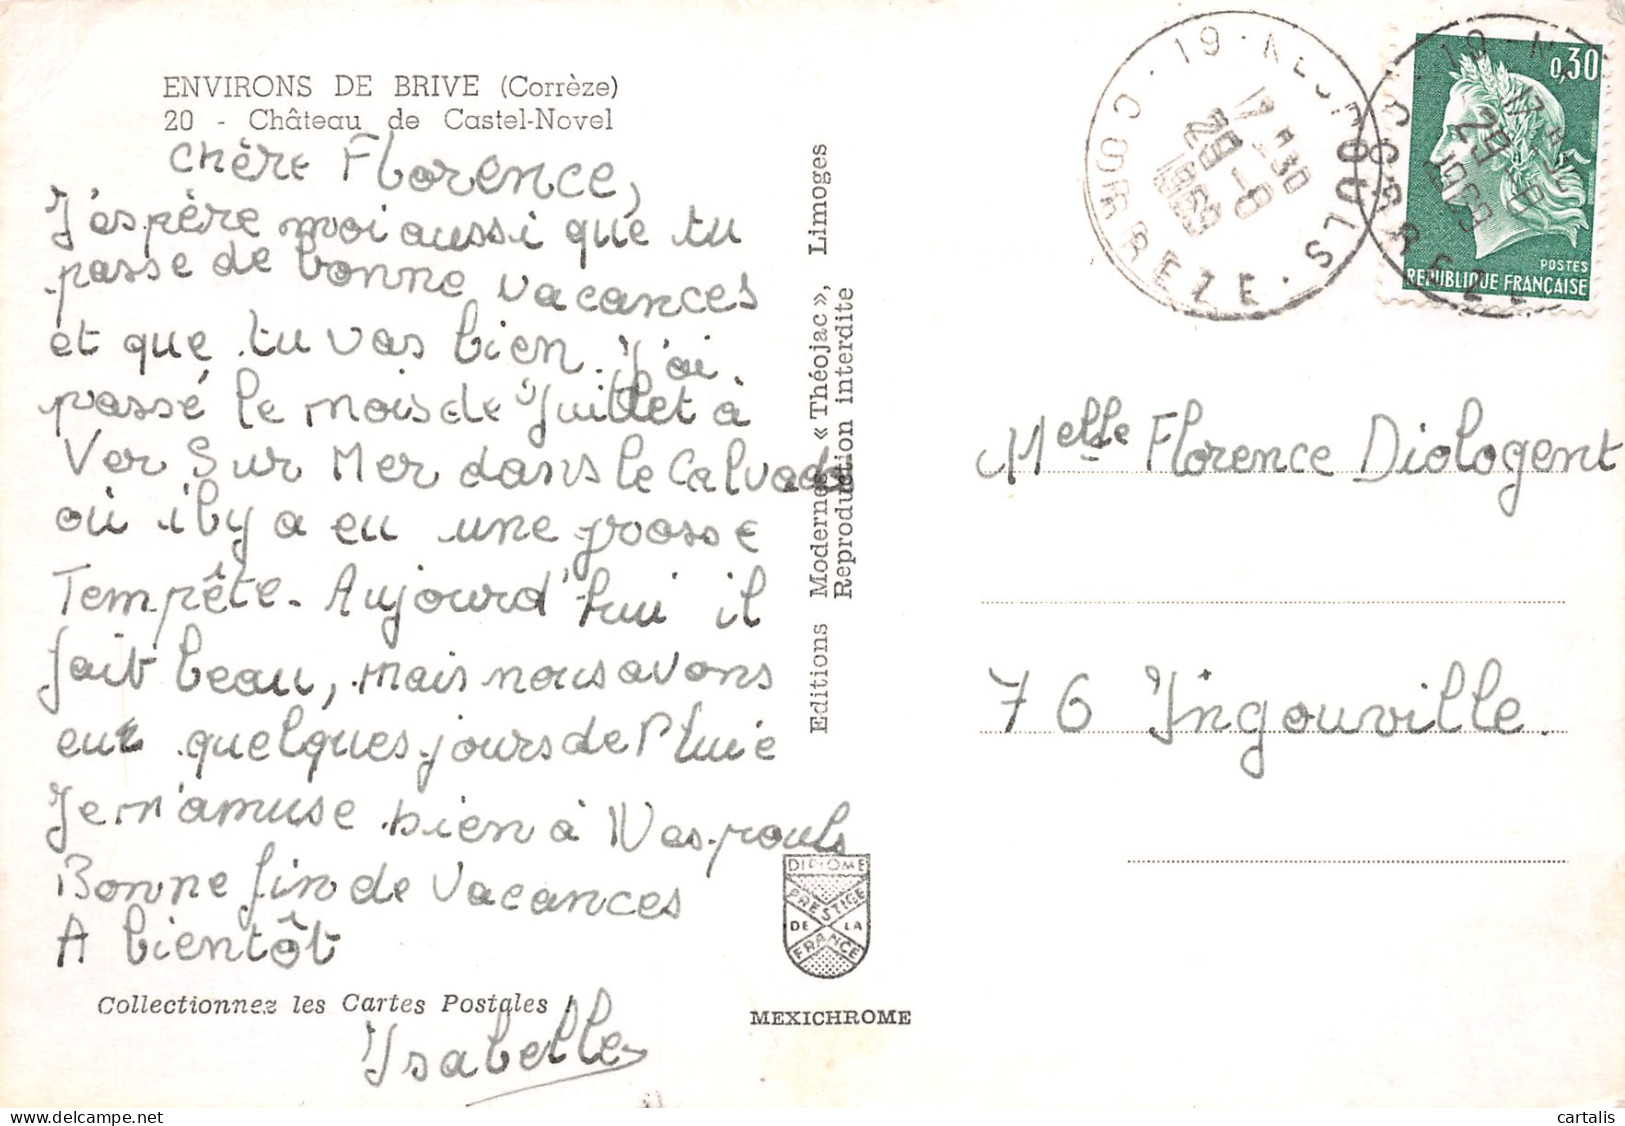 ENVIRONS DE BRIVE (Corrèze)
20 - Château de Castel-Novel
Chère Florence,
J'espère moi aussi que tu
passe de bonne vacances
et que tu vas bien. J'ai
passé le mois de Juillet à
Ver Sur Mer dans le Calvados
où il y a eu une grosse
Tempête. Aujourd'hui il
fait beau, mais nous avons
eut quelques jours de Pluie
Je m'amuse bien à
Bonne fin de Vacances
A bientôt
Collectionnez les Cartes Postales !
Isabelle
Editions Modernes « Théojac », Limoges
Reproduction interdite
DIPLOME
PRESTIGE
DE LA
FRANCE
MEXICHROME
19
17 30
29 - 8
CORREZE
0,30
POSTES
REPUBLIQUE FRANÇAISE
Melle Florence Diologent
76 Ingouville.
cartalis